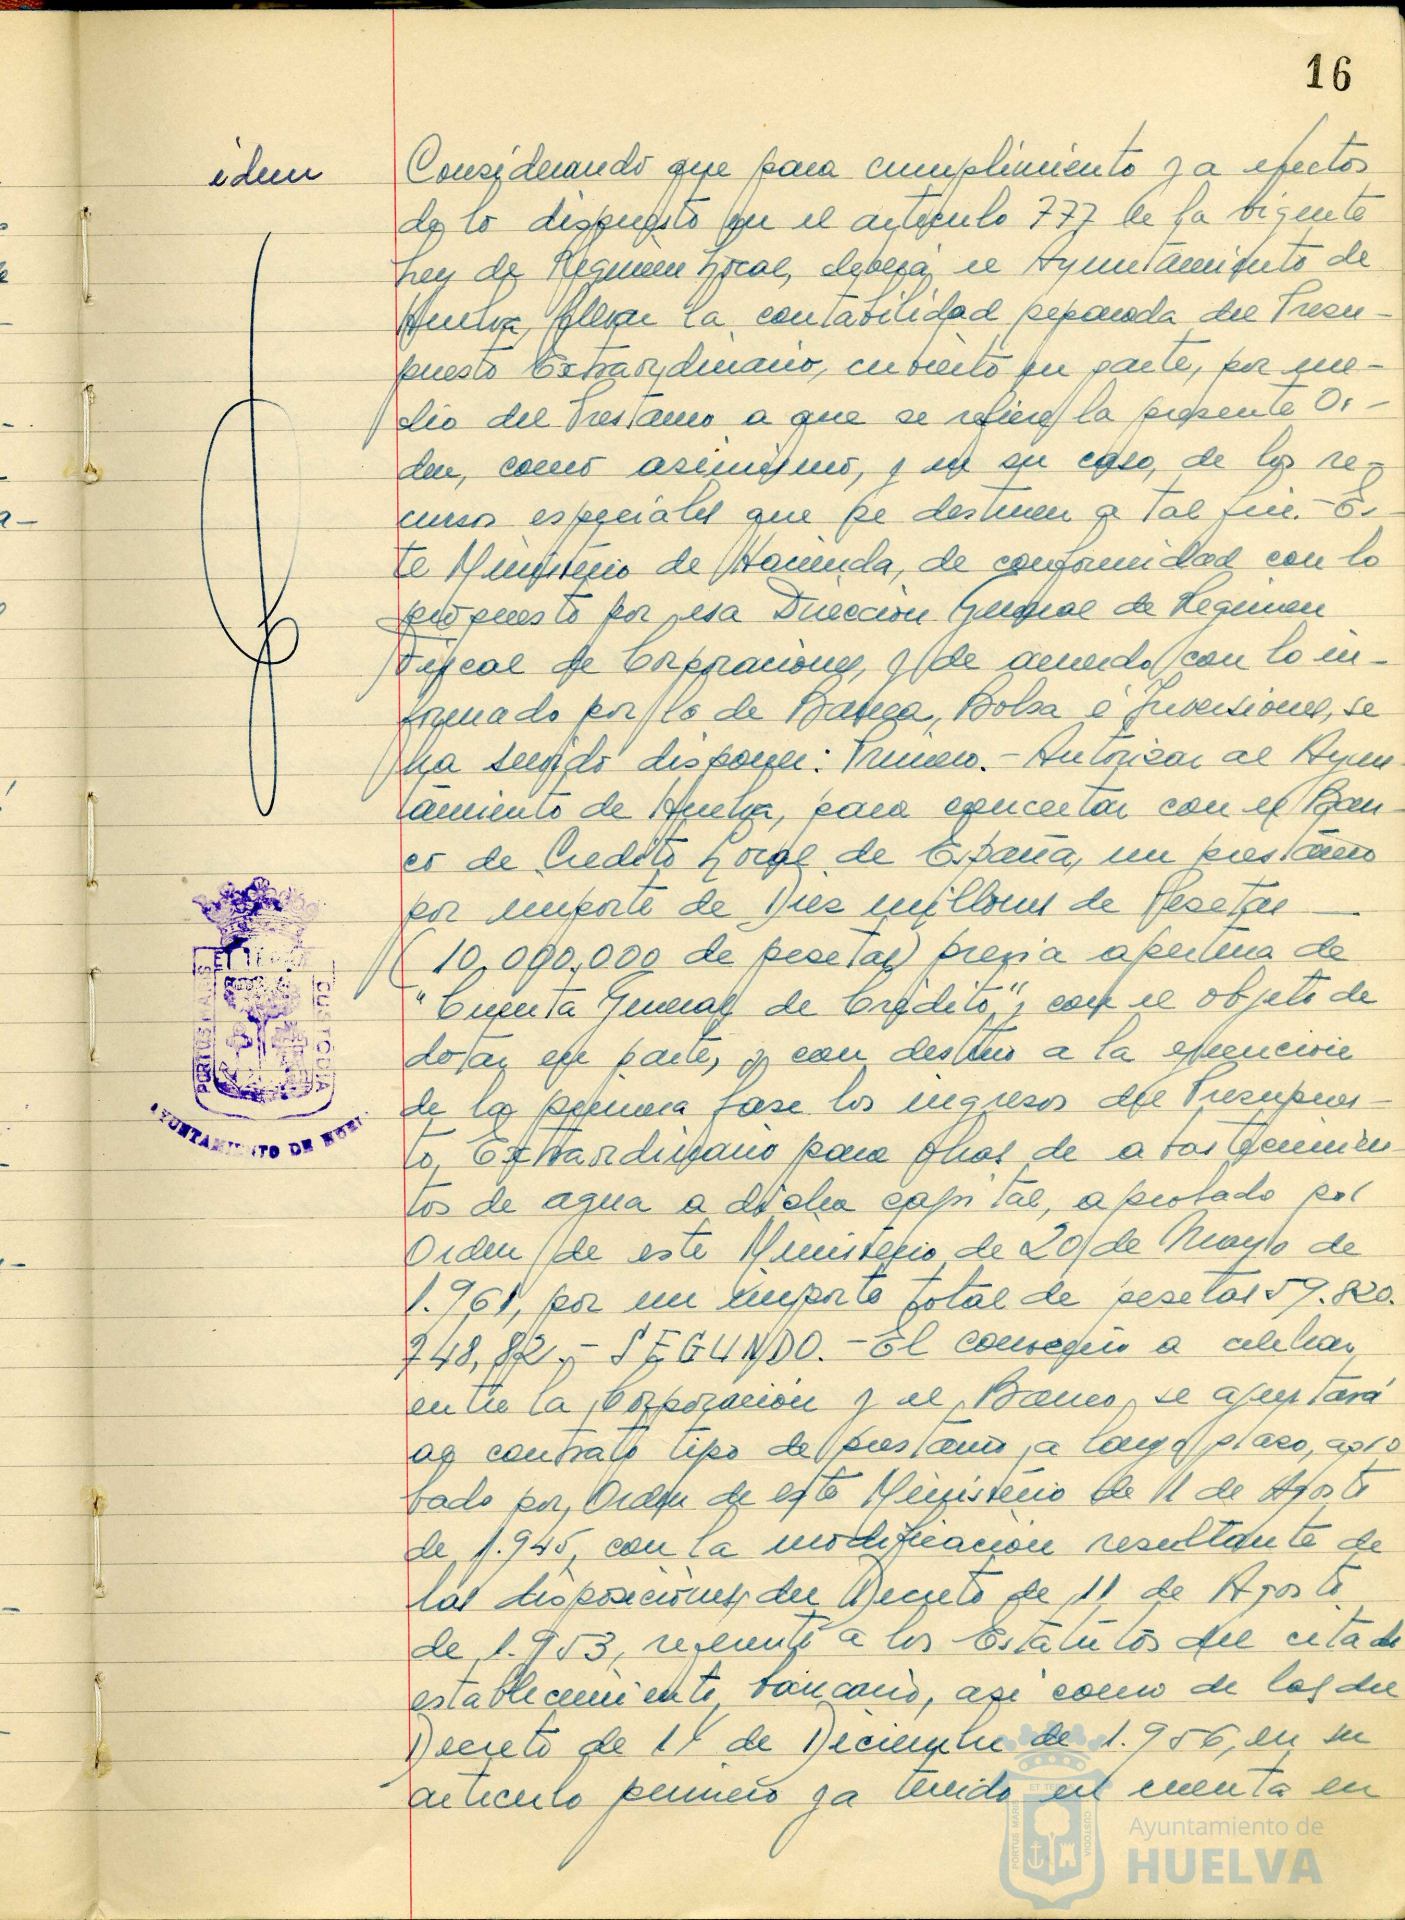 16
idem
Considerando que para cumplimiento y a efectos
de lo dispuesto en el articulo 777 de la vigente
Ley de Regimen Local, deberá el Ayuntamiento de
Huelva, llevar la contabilidad separada del Presu-
puesto Extraordinario, cubierto en parte, por me-
dio del Prestamo a que se refiere la presente Or-
den, como asimismo, y en su caso, de los re-
cursos especiales que se destinen a tal fin.- Es-
te Ministerio de Hacienda, de conformidad con lo
propuesto por esa Dirección General de Regimen
Fiscal de Corporaciones, y de acuerdo con lo in-
formado por la de Banca, Bolsa é Inversiones, se
ha servido disponer: Primero.- Autorizar al Ayun-
tamiento de Huelva, para concertar con el Ban-
co de Credito Local de España, un prestamo
por importe de Diez millones de Pesetas —
(10.000.000 de pesetas) previa apertura de
"Cuenta General de Crédito", con el objeto de
dotar en parte, y con destino a la ejencicion
de la primera fase los ingresos del Presupues-
to, Extraordinario para obras de abastecimien-
tos de agua a dicha capital, aprobado por
Orden de este Ministerio de 20 de Mayo de
1.961, por un importe total de pesetas 59.820.
748,82.- SEGUNDO.- El convenio a celebrar
entre la Corporación y el Banco, se ajustará
al contrato tipo de prestamo a largo plazo, apro
bado por Orden de este Ministerio de 11 de Agosto
de 1.945, con la modificación resultante de
las disposiciones del Decreto de 11 de Agosto
de 1.953, referente a los Estatutos del citado
establecimiento bancario, asi como de las del
Decreto de 11 de Diciembre de 1.956, en su
articulo primero ya tenido en cuenta en
PORTUS MARIS
ET TERRAE
CUSTODIA
AYUNTAMIENTO DE HUEL
PORTUS MARIS
ET TERRAE
CUSTODIA
Ayuntamiento de
HUELVA